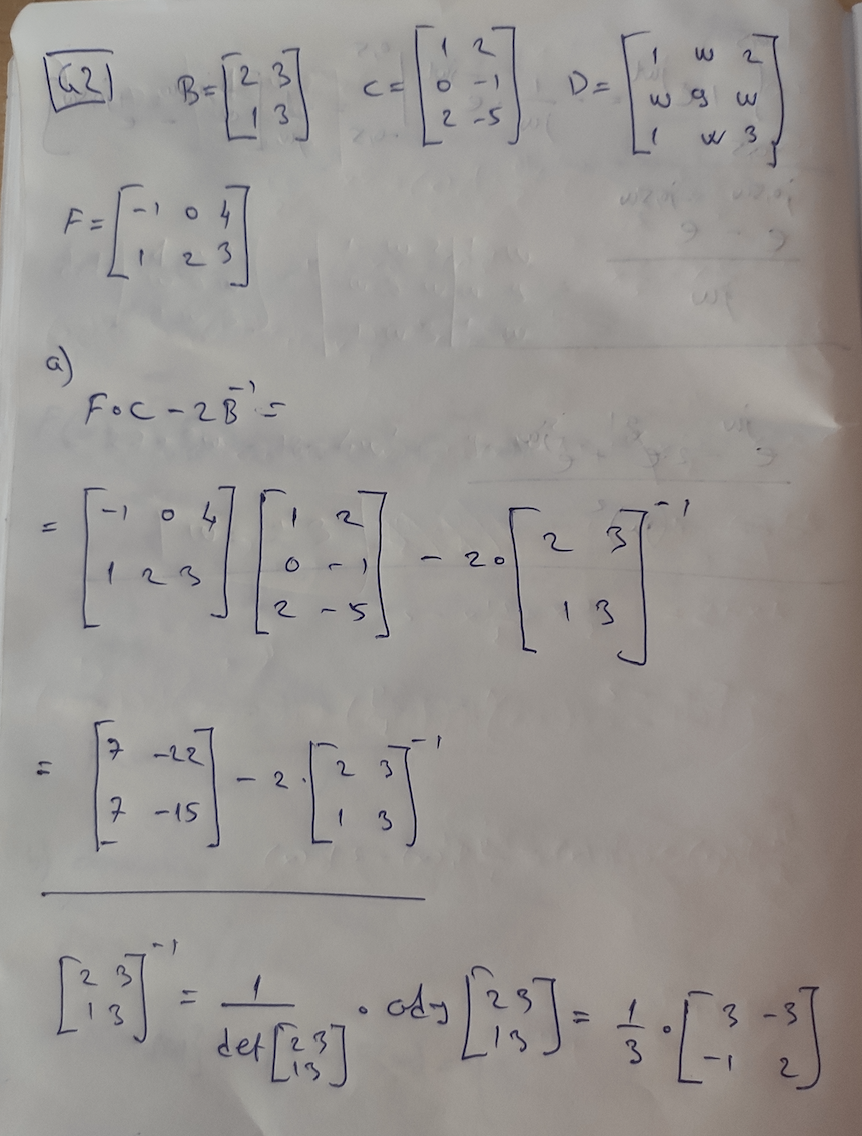 G2) B = [2 3; 1 3] C = [1 2; 0 -1; 2 -5] D = [1 w 2; w 9 w; 1 w 3]
F = [-1 0 4; 1 2 3]
a)
F∘C - 2B⁻¹ =
= [-1 0 4; 1 2 3] [1 2; 0 -1; 2 -5] - 2∘[2 3; 1 3]⁻¹
= [7 -22; 7 -15] - 2·[2 3; 1 3]⁻¹
[2 3; 1 3]⁻¹ = 1/det[2 3; 1 3] · ady [2 3; 1 3] = 1/3 ∘ [3 -3; -1 2]